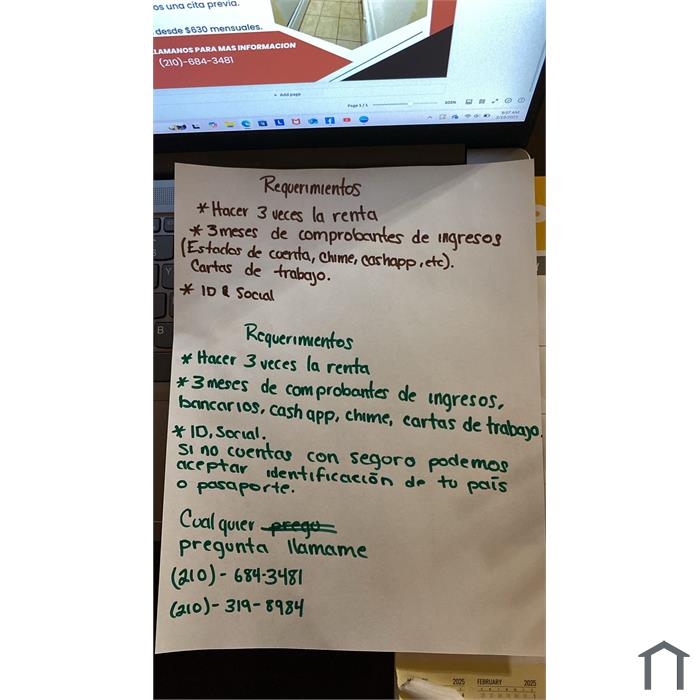 os una cita previa.
desde $630 mensuales.
LLAMANOS PARA MAS INFORMACION
(210)-684-3481
+ Add page
Page 1 / 1
Requerimientos
* Hacer 3 veces la renta
* 3 meses de comprobantes de ingresos
(Estados de cuenta, chime, cashapp, etc).
Cartas de trabajo.
* ID & Social
Requerimientos
* Hacer 3 veces la renta
* 3 meses de comprobantes de ingresos,
bancarios, cash app, chime, cartas de trabajo.
* ID, Social.
Si no cuentas con seguro podemos
aceptar identificación de tu país
o pasaporte.
Cualquier pregu
pregunta llamame
(210)- 684-3481
(210)- 319-8984
2025 FEBRUARY 2025